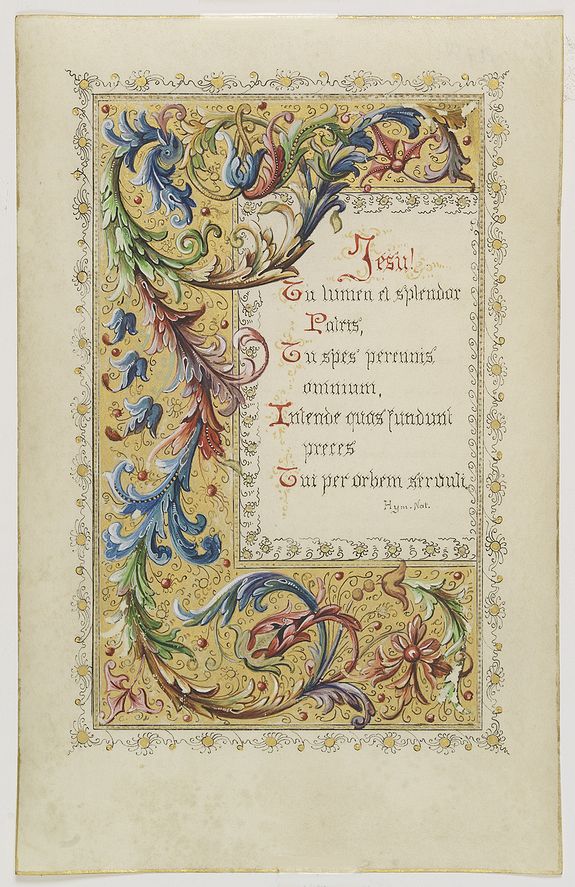 Jesu!
Tu lumen et splendor
Patris,
Tu spes perennis
omnium,
Intende quas fundunt
preces
Tui per orbem servuli.
Hym. Nat.